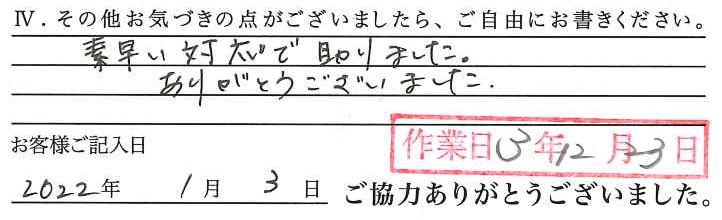 Ⅳ．その他お気づきの点がございましたら、ご自由にお書きください。
素早い対応で助りました。
ありがとうございました.
お客様ご記入日
作業日 3年12月23日
2022年 1月 3日
ご協力ありがとうございました。